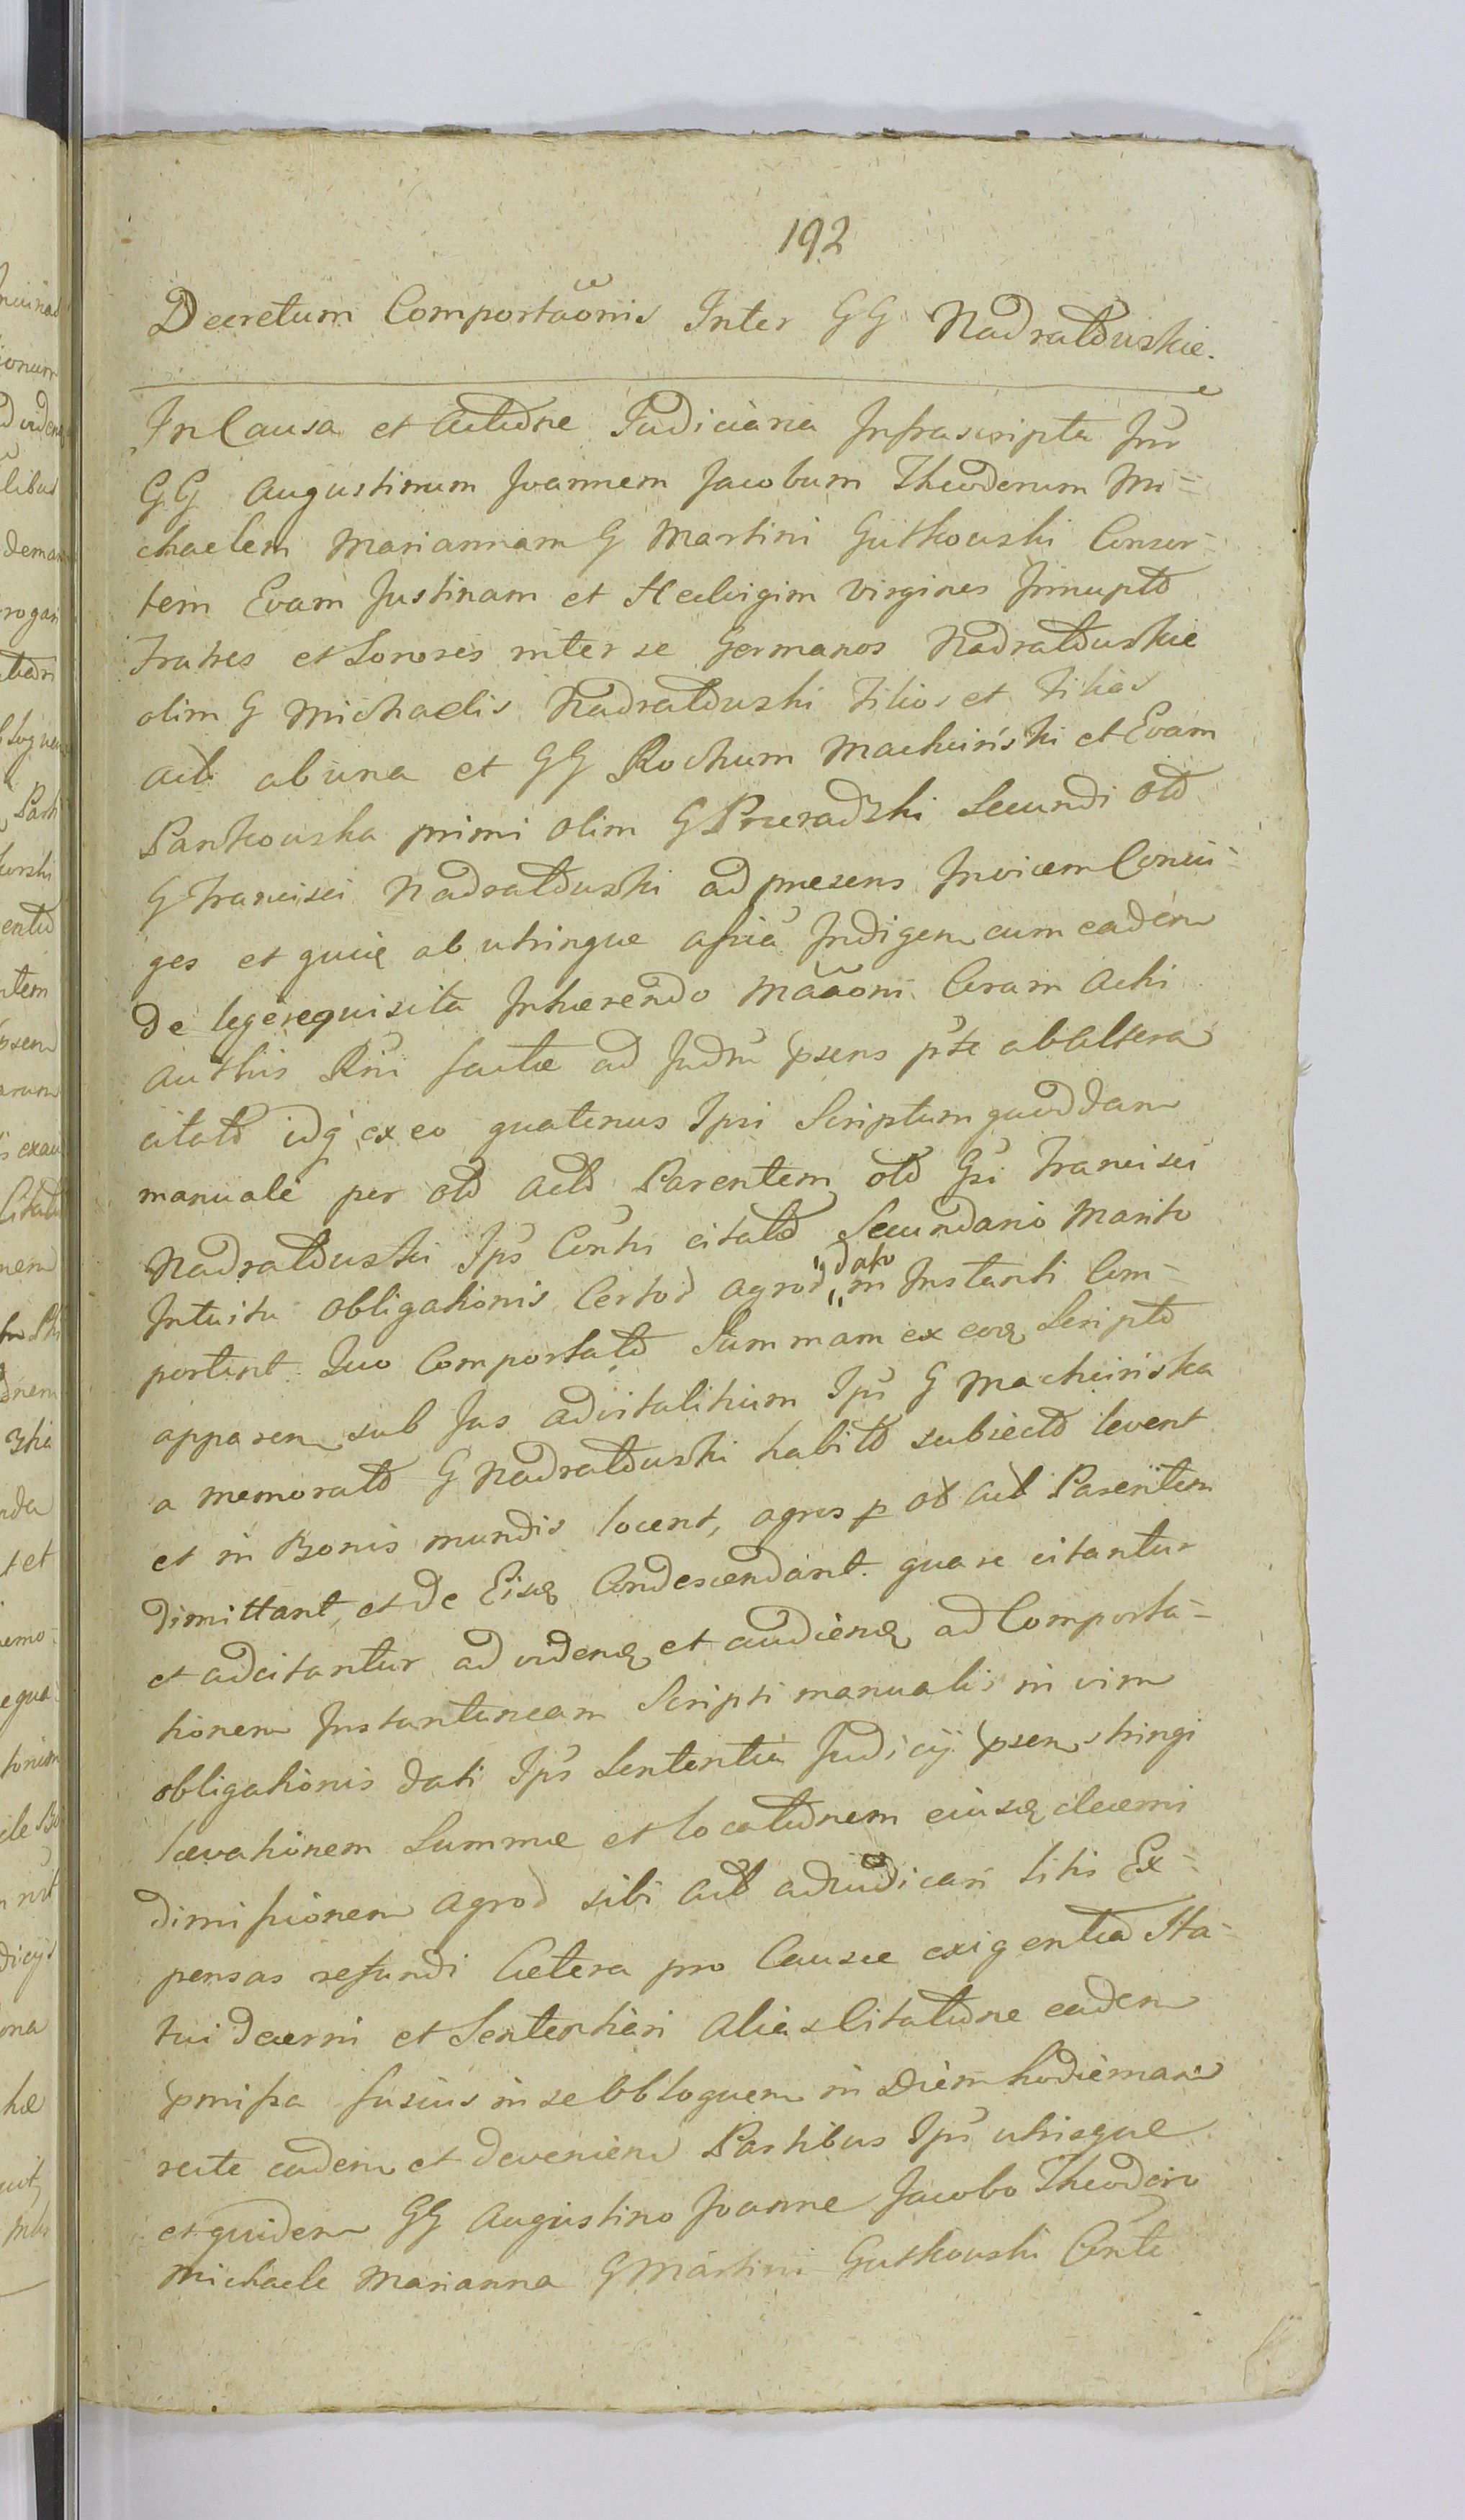 192
Decretum Comportãonis Inter GG Nadratowskie.
In Causa et Actione Judiciaria Infrascripta Inr
GG Augustinum Joannem Jacobum Theodorum Mi=
chaelem Mariannam G Martini Gutkowski Consor=
tem Evam Justinam et Hedvigim virgines Innupt
Fratres et Sorores inter se Germanos Nadratowskie
olim G Michaelis Nadratowski Filios et Filias
act ab una et GG Rochum Machciński et Evam
Pankowska primi olim G Prusadzki Secundi ol
G Francisci Nadratowski ad praesens Invicem Coniu=
ges et quić ab utrinque Indigen cum eadem
de lege requisita Inhaerendo Mãaoni Coram Actis
Authis factae ad Judm psens pte ab altera
citat idq ex eo quatenus Ipsi Scriptum quoddam
manuale per ol act Parentem ol Gsi Francisci
Nadratowski Ips Conthi citat Secundario Marito
Intuitu obligationis Certor agror dato in Instanti Com=
portent Quo Comportato Summam ex eoq Script
apparen sub Jus advitalitium Ips G Machcińska
a memorat G Nadratowski habit subiect levent
et in Bonis mundis locent, agros p ol act Parentem
dimittant, et de Eisq Condescendant. quare citantur
et adcitantur ad videnq et audienq ad Comporta=
tionem Instantaneam Scripti manualis in vim
obligationis dati Ips Sententia Judicij psen stringi
laevationem Summae et locationem eiusq decerni
dimissionem agror sibi act adiudicari litis Ex=
pensas refundi Caetera pro Causae exigentia Sta=
tui decerni et Sententiari Alias Citatione eadem
pmissa fusius in se Obloquen in Diem hodiernam
recte caden et devenien Partibus Ips utrisque
et quidem GG Augustino Joanne Jacobo Theodoro
Michaele Marianna G Martini Gutkowski Conte